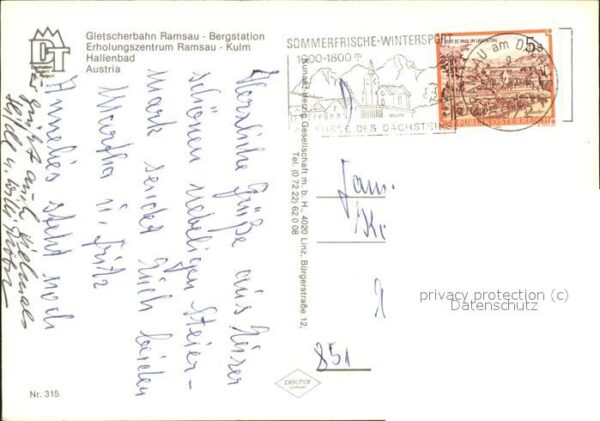 Gletscherbahn Ramsau - Bergstation
Erholungszentrum Ramsau - Kulm
Hallenbad
Austria
DT
SOMMERFRISCHE-WINTERSPORT
1100-1800 m
FUSSE DES DACHSTEINS
RAMSAU am D
STIFT ST. PAUL IM LAVANTTAL
5s
REPUBLIK ÖSTERREICH
Herzliche Grüße aus
schönen nebeligen Steier-
mark sendet Euch beiden
Martha u. Fritz
Annelies steht noch
es grüßt auch
Herzig Gesellschaft m. b. H., 4020 Linz, Bürgerstraße 12,
Tel. (0 72 22) 62 0 08
Fam.
851
perchar
Nr. 315
privacy protection (c)
Datenschutz